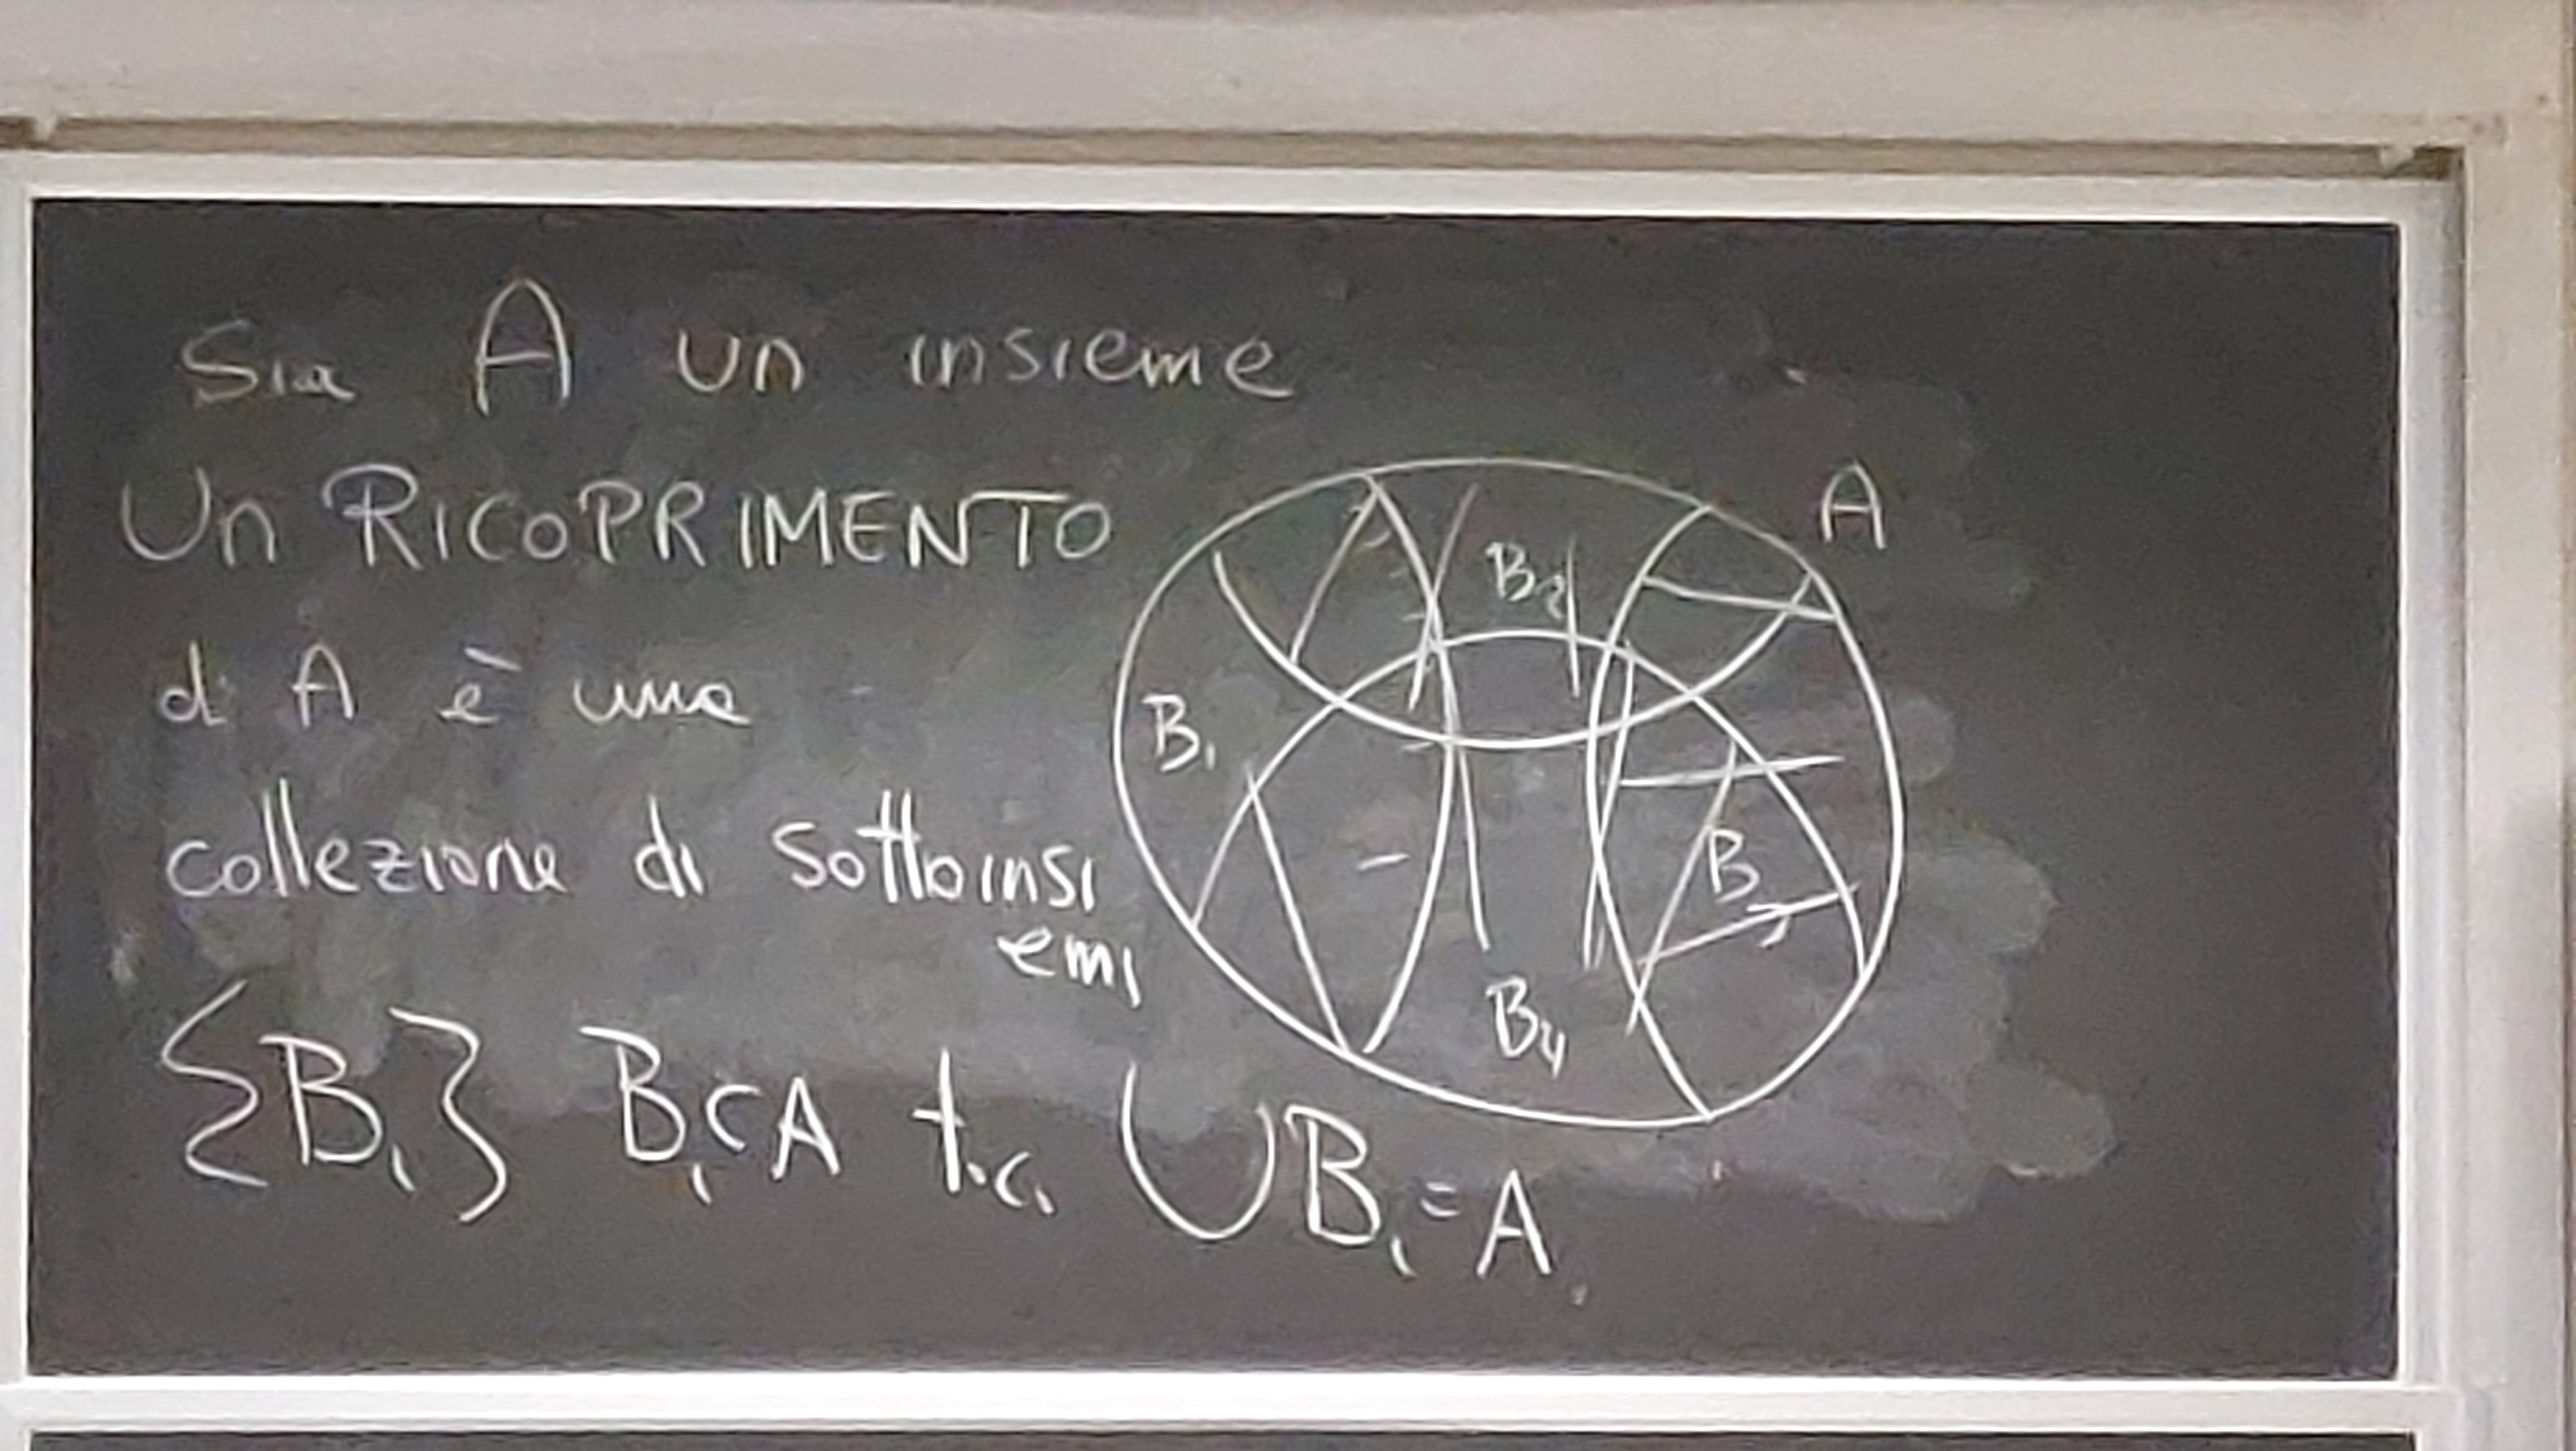 Sia A un insieme
Un RICOPRIMENTO
di A è una
collezione di sottoinsi
emi
{Bᵢ} Bᵢ⊂A t.c. ∪Bᵢ=A.
A
B₂
B₁
B₃
B₄